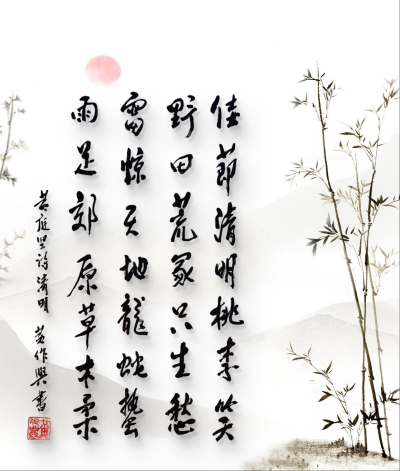 佳節清明桃李笑
野田荒冢只生愁
雷惊天地龍蛇蟄
雨足郊原草木柔
黄庭坚詩清明 姜作興書